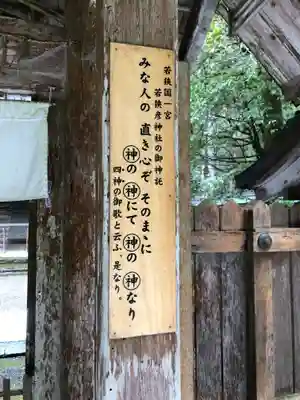 若狭国一宮
若狭彦神社の御神託
みな人の 直き心ぞ そのまゝに
神の神にて 神の神なり
四神の御歌と云ふ、是なり。